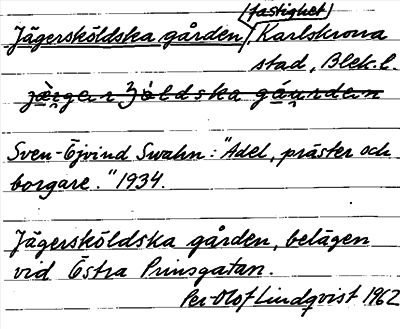 (fastighet)
Jägersköldska gården, Karlskrona
stad, Blek.l.
Sven-Öjvind Swahn: "Adel, präster och
borgare." 1934.
Jägersköldska gården, belägen
vid Östra Prinsgatan.
Per-Olof Lindqvist 1962